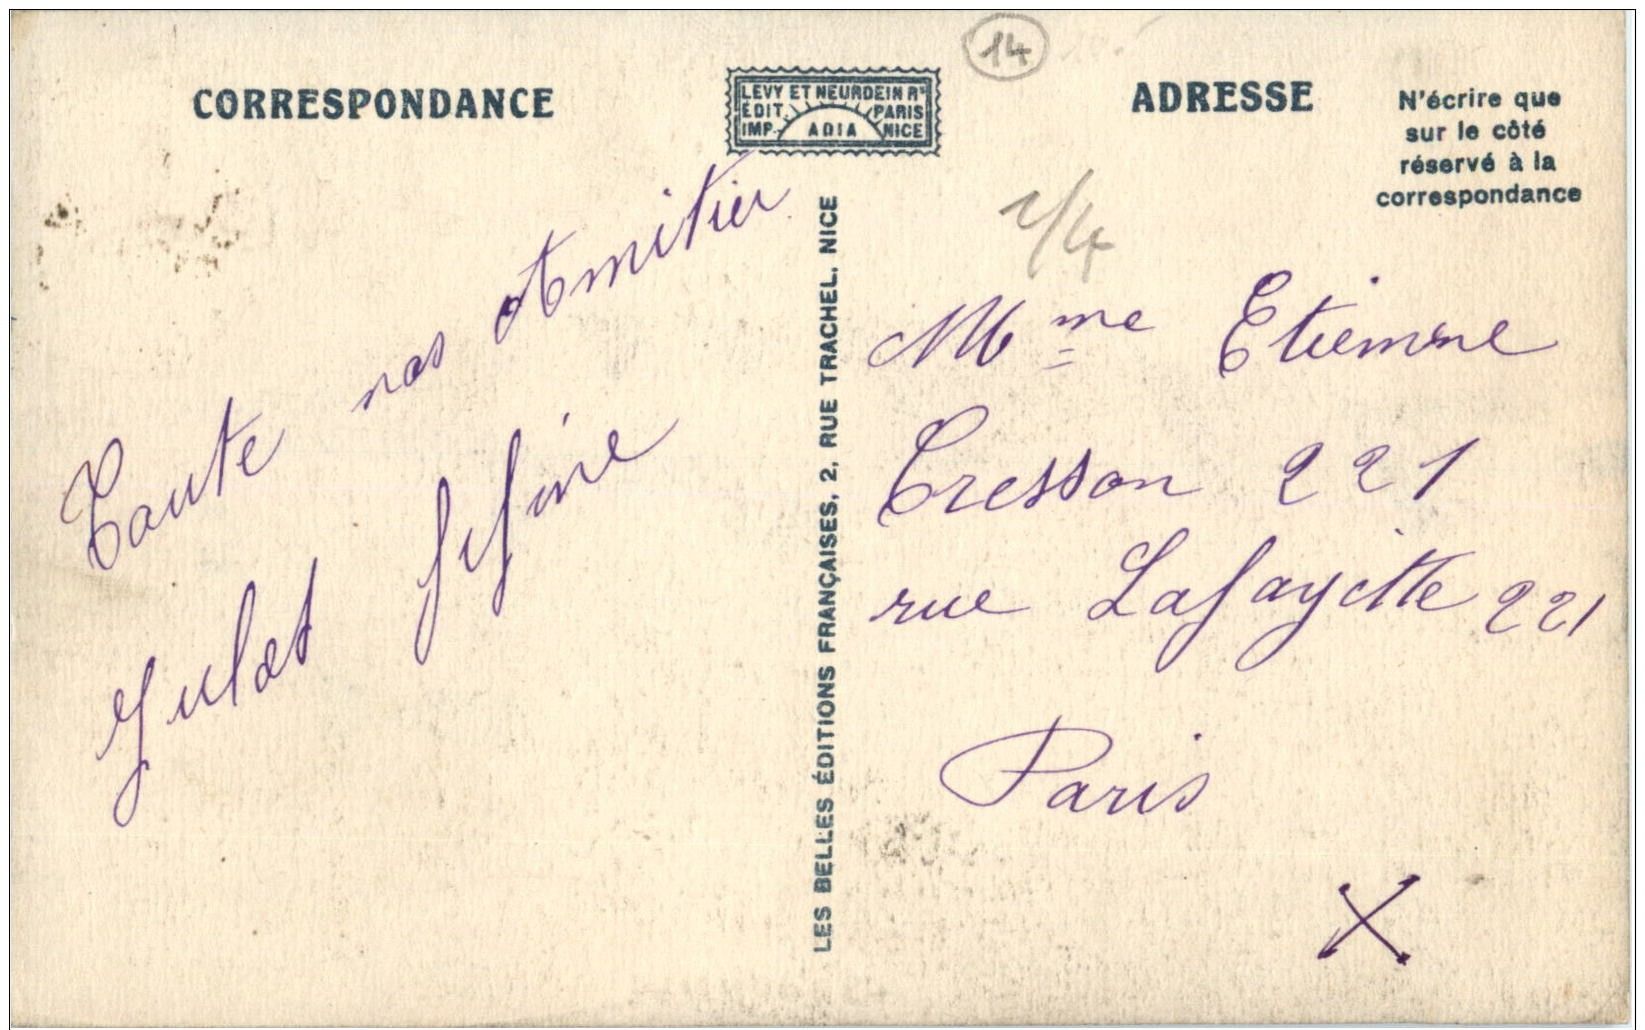 CORRESPONDANCE
LEVY ET NEURDEIN Rs
ÉDIT. PARIS
IMP. ADIA NICE
ADRESSE
N'écrire que
sur le côté
réservé à la
correspondance
14
1/4
Toute nos Amitier
Jules Fifine
LES BELLES ÉDITIONS FRANÇAISES, 2, RUE TRACHEL, NICE
Mme Etienne
Cresson 221
rue Lafayette 221
Paris
X